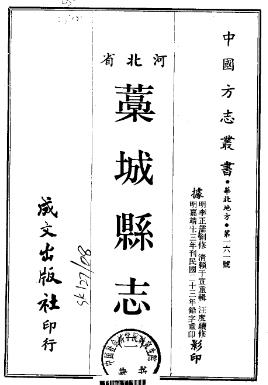 中國方志叢書·華北地方·第一六一號
據
明李正儒創修 清賴于宣重輯 汪度續修
明嘉靖十三年刊民國二十三年鉛字重印
影印
河北省
藁城縣志
成文出版社印行